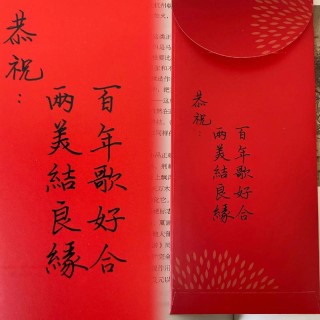 恭祝:
百年歌好合
两美結良緣
恭祝:
百年歌好合
两美結良緣